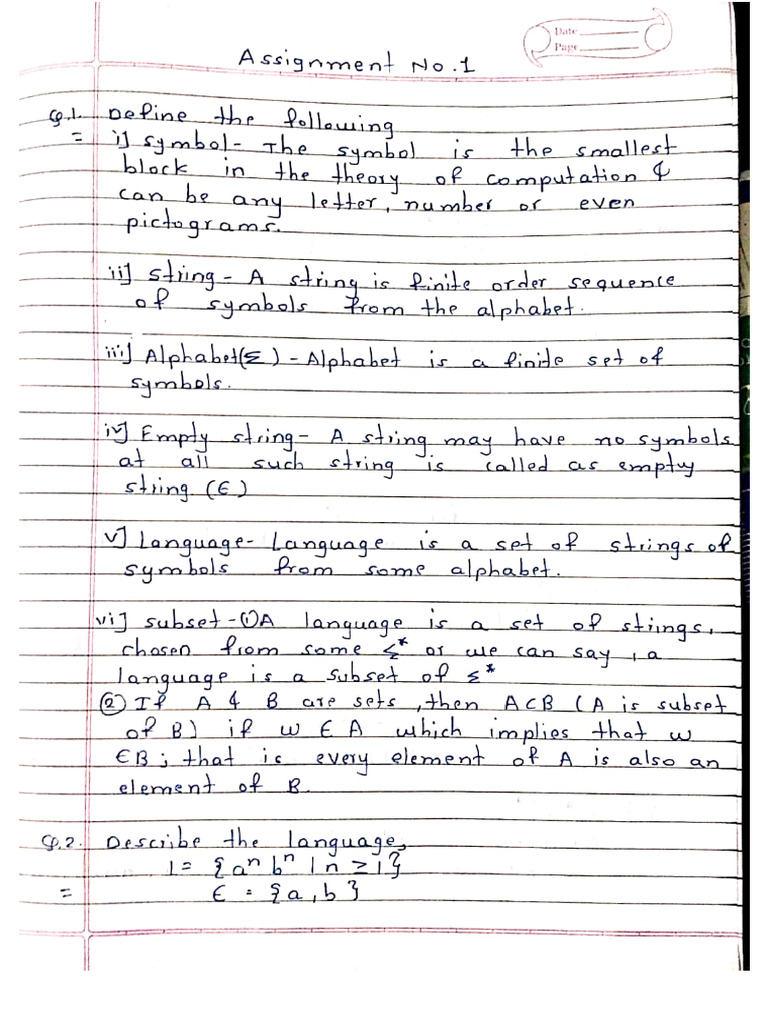 Date
Page
Assignment No.1
Q.1. Define the following
= i] symbol- The symbol is the smallest
block in the theory of computation &
can be any letter, number or even
pictograms.
ii] string - A string is finite order sequence
of symbols from the alphabet.
iii] Alphabet(Σ) - Alphabet is a finite set of
symbols.
iv] Empty string- A string may have no symbols
at all such string is called as empty
string (ϵ)
v] Language- Language is a set of strings of
symbols from some alphabet.
vi] subset -① A language is a set of strings,
chosen from some Σ* or we can say, a
language is a subset of Σ*
② If A & B are sets, then A⊂B (A is subset
of B) if w ∈ A which implies that w
∈B; that is every element of A is also an
element of B.
Q.2. Describe the language,
l = {aⁿ bⁿ | n ≥ 1}
= ϵ = {a, b}